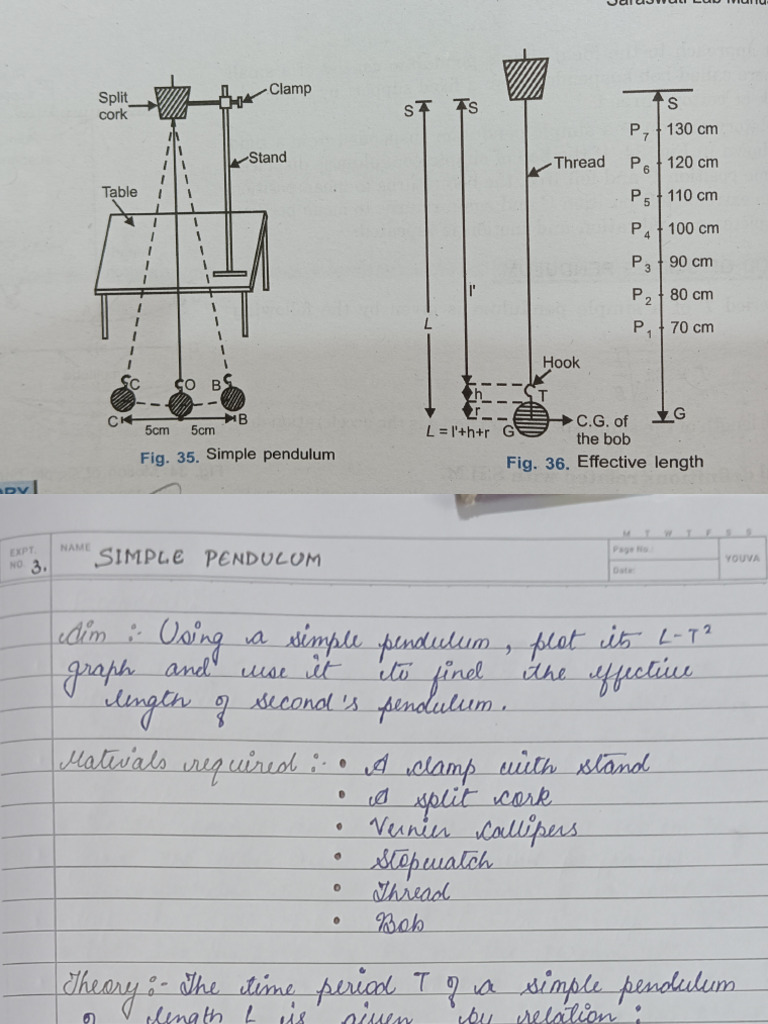 Saraswati Lab Manu
Split
cork
Clamp
Stand
Table
C
O
B
C
B
5cm
5cm
Fig. 35. Simple pendulum
S
S
Thread
l'
L
Hook
h
T
r
L = l'+h+r
G
C.G. of
the bob
Fig. 36. Effective length
S
P7 130 cm
P6 120 cm
P5 110 cm
P4 100 cm
P3 90 cm
P2 80 cm
P1 70 cm
G
M T W T F S S
EXPT.
NO. 3.
NAME SIMPLE PENDULUM
Page No.:
Date:
YOUVA
Aim :- Using a simple pendulum, plot its L-T²
graph and use it to find the effective
length of second's pendulum.
Materials required :- • A clamp with stand
• A split cork
• Vernier Callipers
• Stopwatch
• Thread
• Bob
Theory :- The time period T of a simple pendulum
of length L is given by relation :